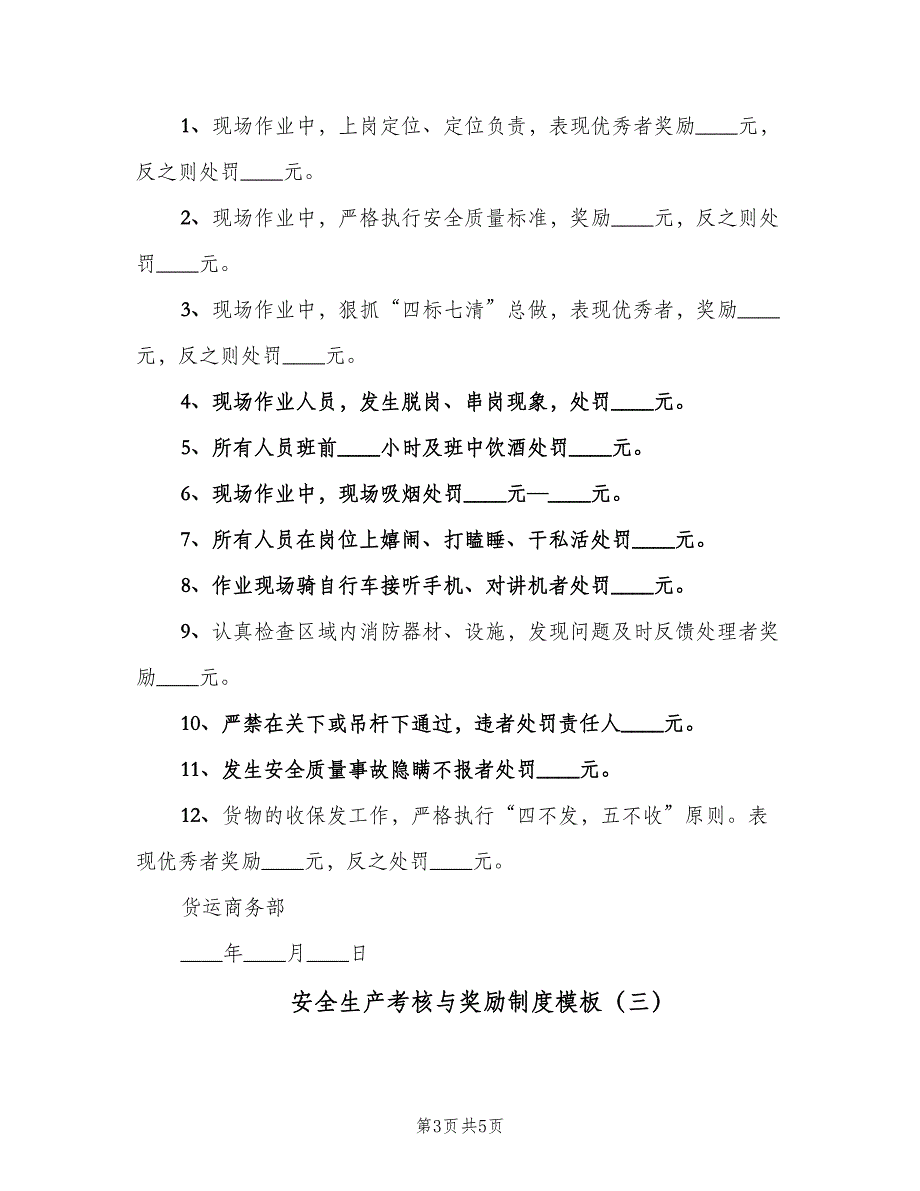 1、现场作业中，上岗定位、定位负责，表现优秀者奖励____元，
反之则处罚____元。
2、现场作业中，严格执行安全质量标准，奖励____元，反之则处
罚____元。
3、现场作业中，狠抓“四标七清”总做，表现优秀者，奖励____
元，反之则处罚____元。
4、现场作业人员，发生脱岗、串岗现象，处罚____元。
5、所有人员班前____小时及班中饮酒处罚____元。
6、现场作业中，现场吸烟处罚____元—____元。
7、所有人员在岗位上嬉闹、打瞌睡、干私活处罚____元。
8、作业现场骑自行车接听手机、对讲机者处罚____元。
9、认真检查区域内消防器材、设施，发现问题及时反馈处理者奖
励____元。
10、严禁在关下或吊杆下通过，违者处罚责任人____元。
11、发生安全质量事故隐瞒不报者处罚____元。
12、货物的收保发工作，严格执行“四不发，五不收”原则。表
现优秀者奖励____元，反之处罚____元。
货运商务部
____年____月____日
安全生产考核与奖励制度模板（三）
第3页共5页